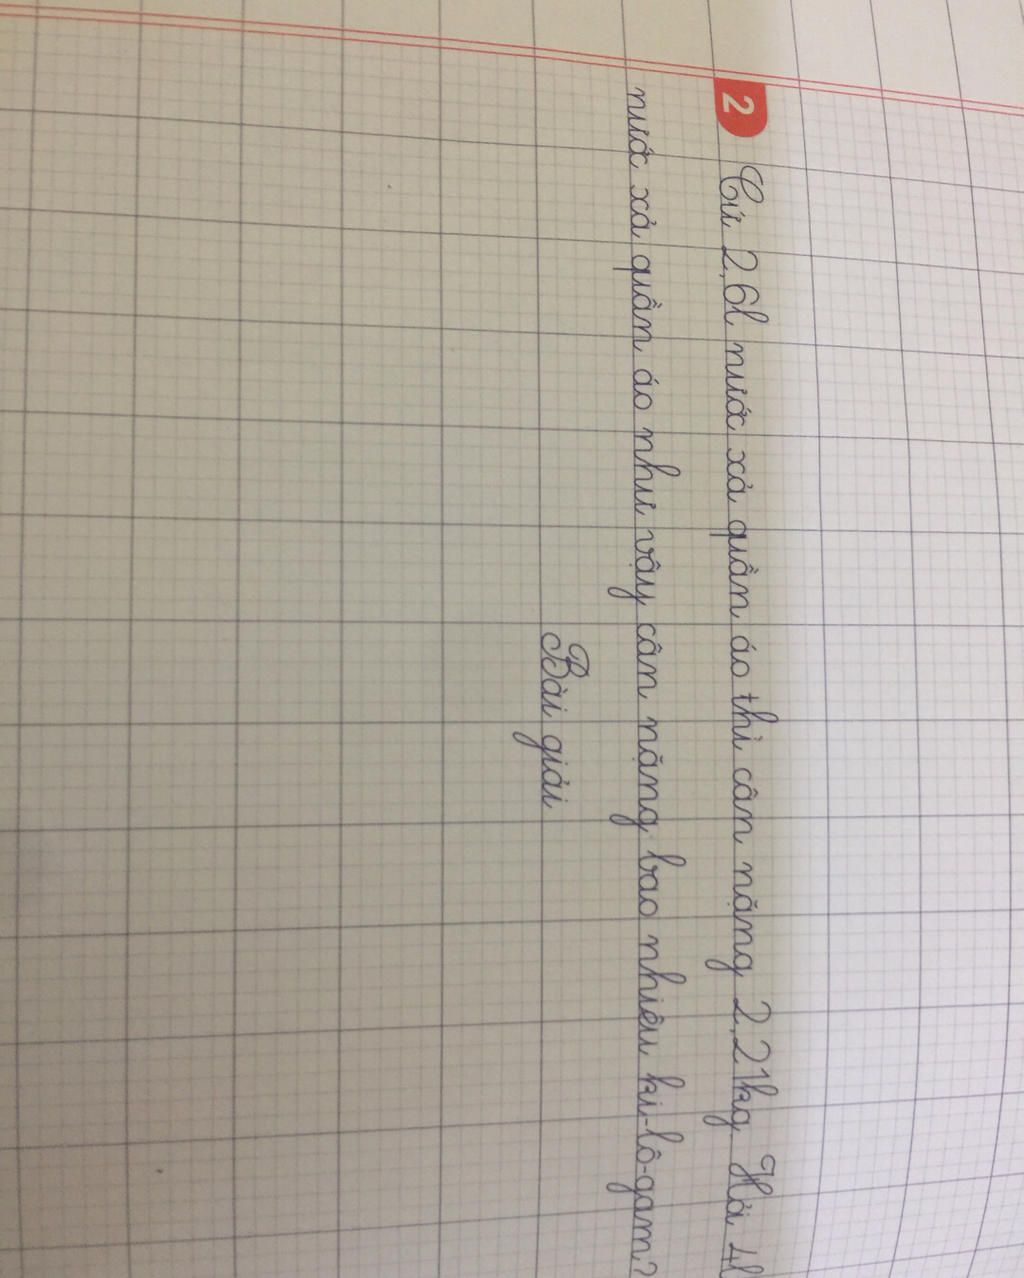 2 Cứ 2,6l nước xả quần áo thì cân nặng 2,21kg. Hỏi 4l
nước xả quần áo như vậy cân nặng bao nhiêu ki-lô-gam?
Bài giải